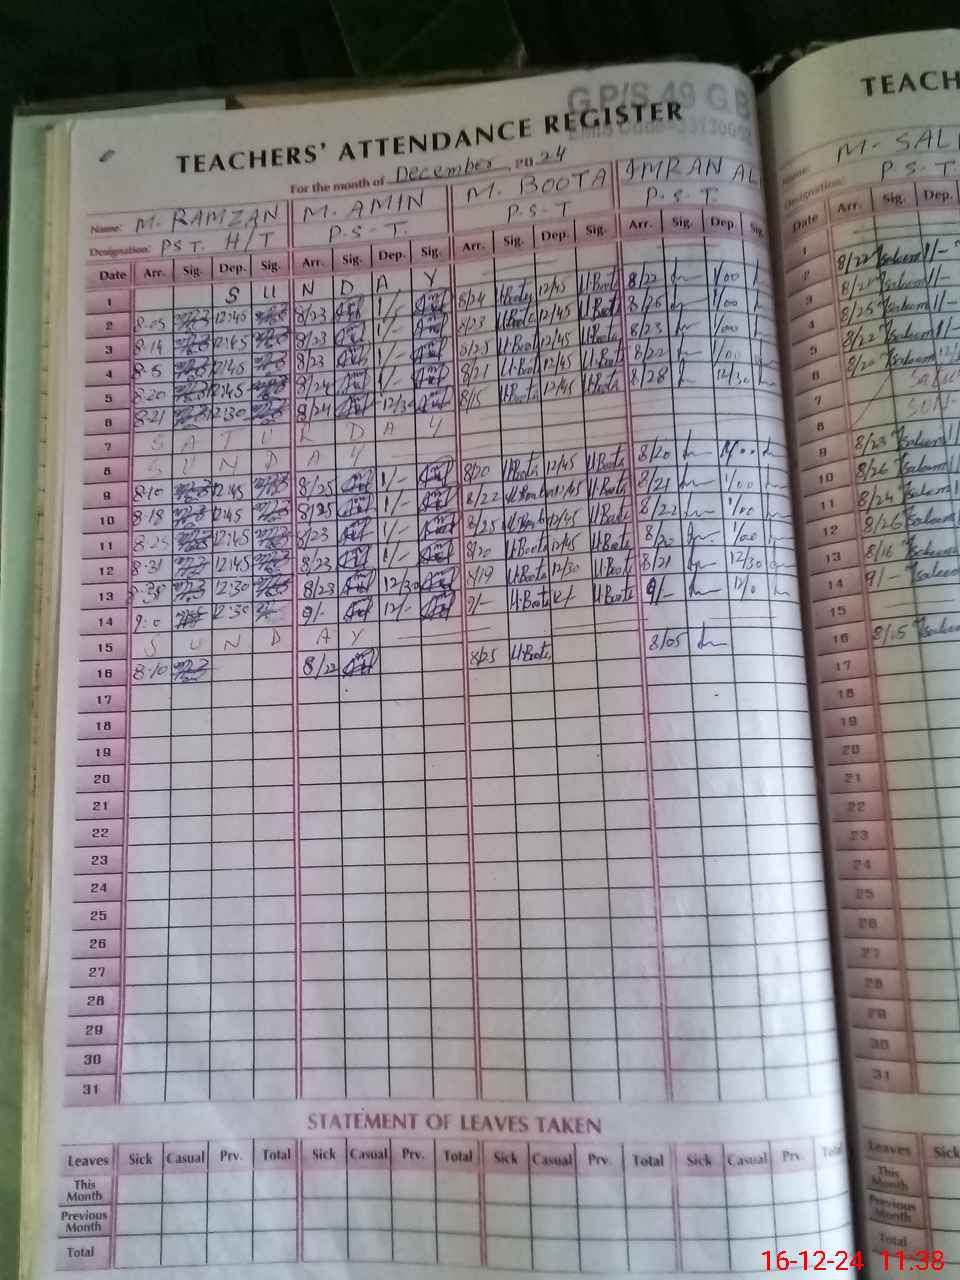 G.P/S 49 GB
TEACHERS' ATTENDANCE REGISTER
For the month of December 2024
Name: M. RAMZAN M. AMIN M. BOOTA IMRAN ALI
Designation: PST. H/T P.S-T. P.S-T P.S-T.
Date Arr. Sig. Dep. Sig. Arr. Sig. Dep. Sig. Arr. Sig. Dep. Sig. Arr. Sig. Dep. Sig.
1 S U N D A Y
2 8-05 12:45 8/23 1/- 8/24 M.Boota 12/45 M.Boota 8/22 1/00
3 8-14 12:45 8/23 1/- 8/23 M.Boota 12/45 M.Boota 8/26 1/00
4 8-5 12:45 8/23 1/- 8/25 M.Boota 12/45 M.Boota 8/23 1/00
5 8-20 12:45 8/24 1/- 8/21 M.Boota 12/45 M.Boota 8/22 1/00
6 8-21 12:30 8/24 12/30 8/15 M.Boota 12/45 M.Boota 8/28 12/30
7 S A T U R D A Y
8 S U N D A Y
9 8-10 12:45 8/25 1/- 8/20 M.Boota 12/45 M.Boota 8/20 1/00
10 8-18 12:45 8/25 1/- 8/22 M.Boota 12/45 M.Boota 8/21 1/00
11 8-25 12:45 8/23 1/- 8/25 M.Boota 12/45 M.Boota 8/22 1/00
12 8-31 12:45 8/23 1/- 8/20 M.Boota 12/45 M.Boota 8/20 1/00
13 12:30 8/23 12/30 8/19 M.Boota 12/30 M.Boota 8/21 12/30
14 9:0 12:30 9/- 12/- 9/- M.Boota 12/- M.Boota 9/-
15 S U N D A Y
16 8-10 8/22 8/25 M.Boota 8/05
17
18
19
20
21
22
23
24
25
26
27
28
29
30
31
STATEMENT OF LEAVES TAKEN
Leaves Sick Casual Prv. Total Sick Casual Prv. Total Sick Casual Prv. Total Sick Casual Prv. Total
This Month
Previous Month
Total
TEACH
Name: M- SAL
Designation: P.S-T.
Date Arr. Sig. Dep.
1
2 8/22 Saleem 1/-
3 8/21 Saleem 1/-
4 8/25 Saleem 1/-
5 8/22 Saleem 1/-
6 8/20 Saleem
7
8 SUN-
9 8/23 Saleem
10 8/26 Saleem
11 8/24 Saleem
12 8/26 Saleem
13 8/16 Saleem
14 9/- Saleem
15
16 8/15 Saleem
17
18
19
20
21
22
23
24
25
26
27
28
29
30
31
Leaves Sick
This Month
Previous Month
Total
16-12-24 11:38